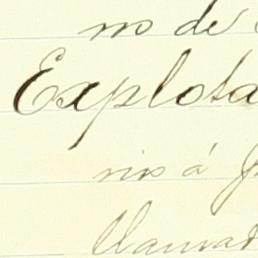 no de
Explota
rios á
llamad